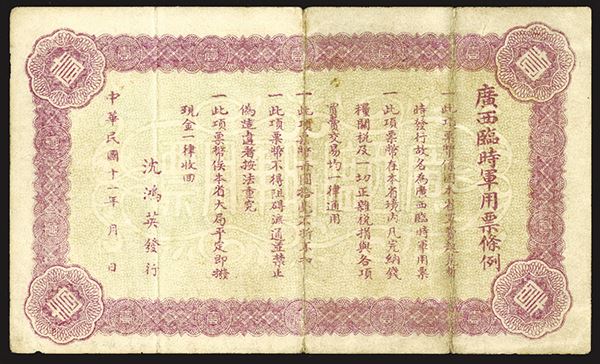 廣西臨時軍用票條例
一此項票幣
時發行故名為廣西臨時軍用票
一此項票幣在本省境內凡完納錢
糧關稅及一切正雜稅捐與各項
買賣交易均一律通用
一此項票幣
一此項票幣不得阻碍流通並禁止
偽造違者按法重究
一此項票幣俟本省大局平定即撥
現金一律收回
沈鴻英發行
中華民國十一年 月 日
壹
壹
壹
壹